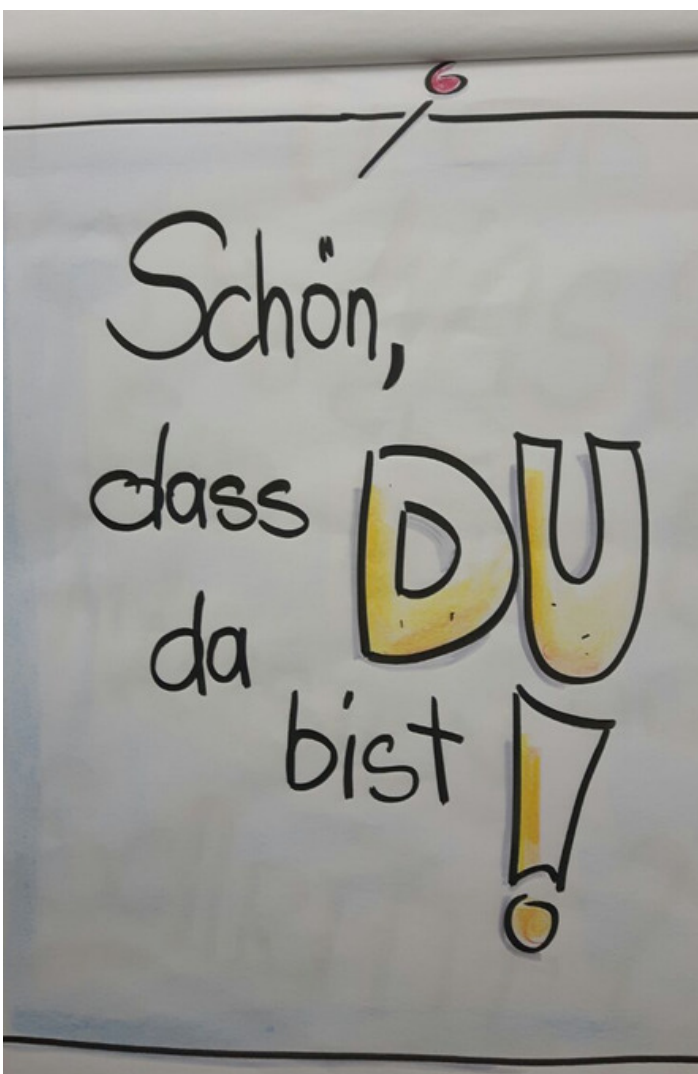 Schön,
dass DU
da
bist!